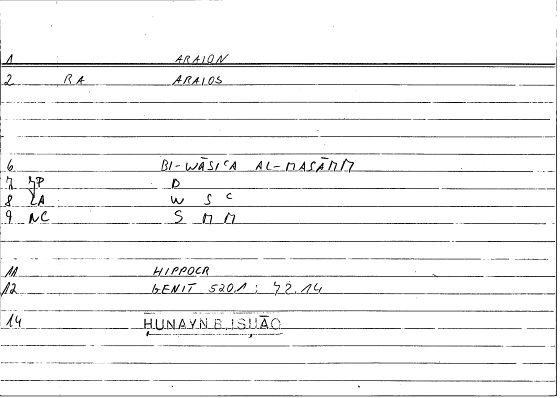 1 ARAION
2 RA ARAIOS
6 BI-WĀSIᶜA AL-MASĀMM
7 JP D
8 LA W S ᶜ
9 NC S M M
11 HIPPOCR
12 GENIT 520.1 ; 72.14
14 ḤUNAYN B. ISḤĀQ